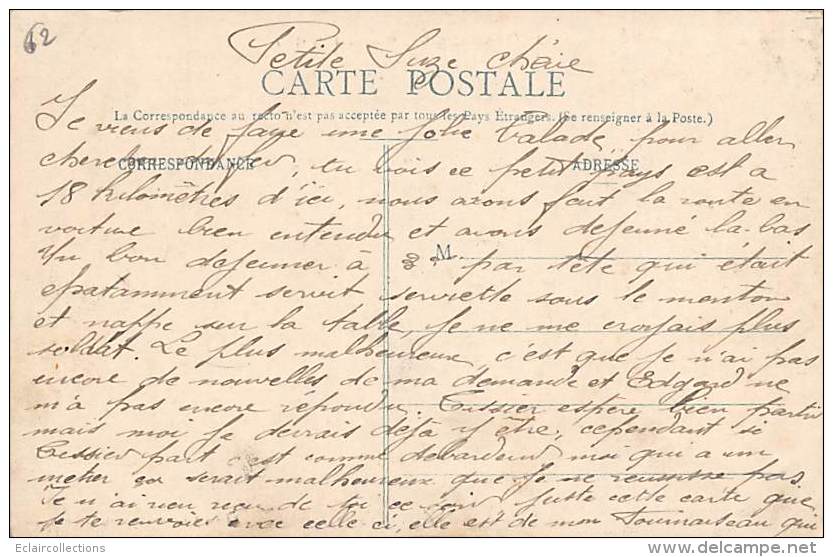 62
Petite Suze chérie
CARTE POSTALE
La Correspondance au recto n'est pas acceptée par tous les Pays Étrangers. (Se renseigner à la Poste.)
Je viens de faire une jolie balade, pour aller
CORRESPONDANCE
ADRESSE
chercher du, tu vois ce petit pays est a
18 kilomètres d'ici, nous avons fait la route en
voiture bien entendu et avons dejeuné la-bas
M.
Un bon dejeuner à 3f par tête qui était
epatamment servit serviette sous le menton
et nappe sur la table, je ne me croyais plus
soldat. Le plus malheureux c'est que je n'ai pas
encore de nouvelles de ma demande et Edgard ne
m'a pas encore répondu. Tissier espère bien partir
mais moi je devrais déjà y être, cependant si
Tissier part c'est comme moi qui a un
metier ca serait malheureux que je ne reussisse pas.
Je n'ai rien reçu de toi ce soir juste cette carte que
je te renvoies avec celle ci, elle est de mon qui
Eclaircollections
delcampe.net